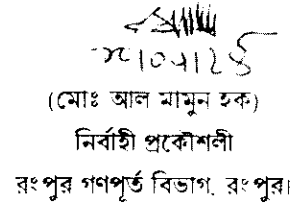 (মোঃ আল মামুন হক)
নির্বাহী প্রকৌশলী
রংপুর গণপূর্ত বিভাগ, রংপুর।